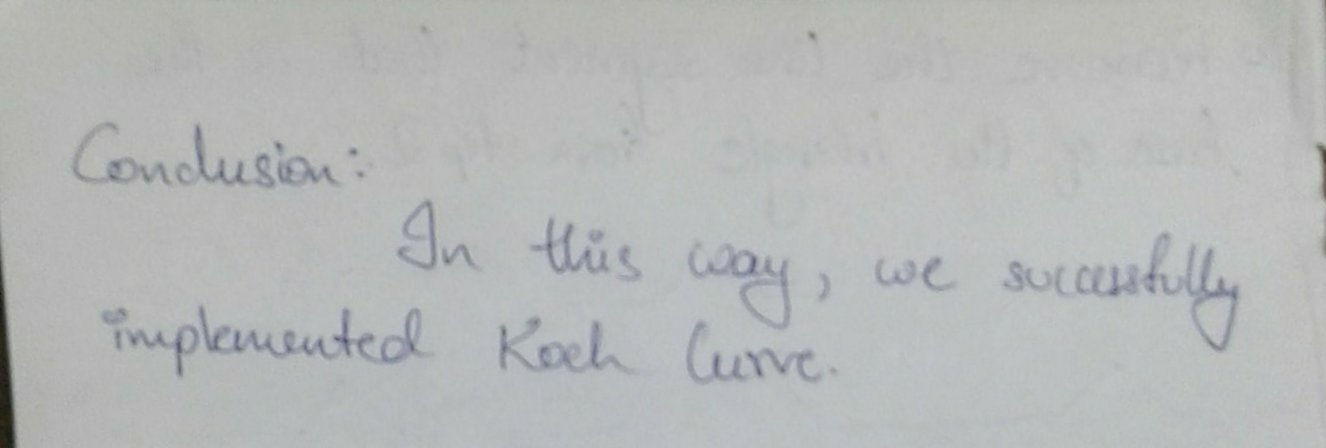 Conclusion:
In this way, we successfully
implemented Koch Curve.